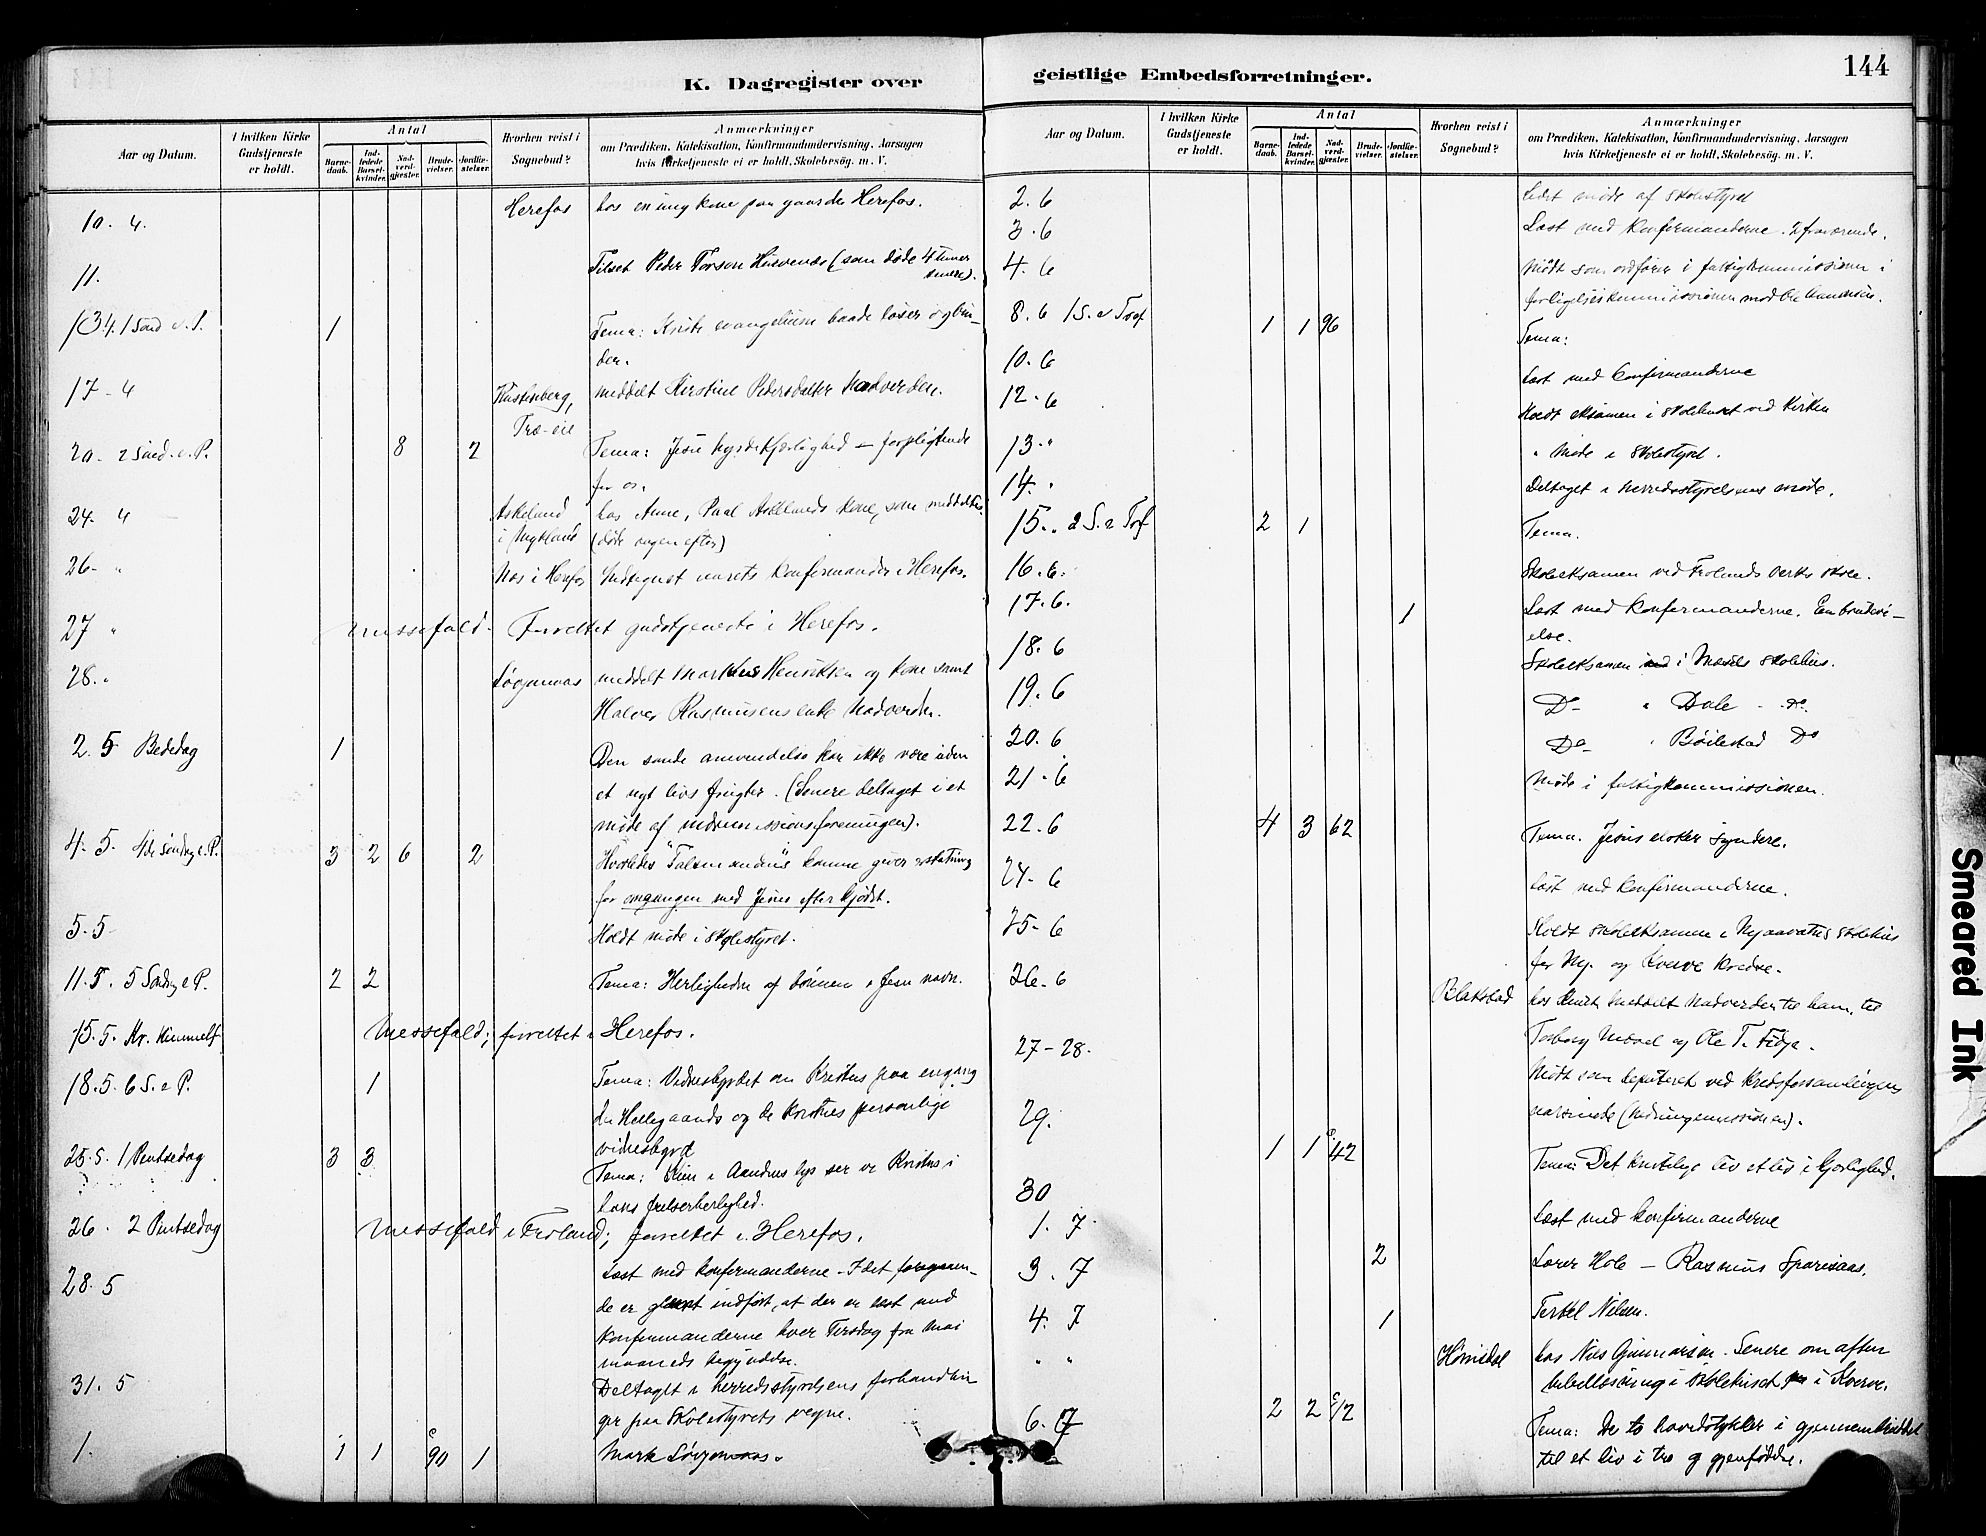 K. Dagregister over
Aar og Datum.
I hvilken Kirke Gudstjeneste er holdt.
Antal
Barnedaab.
Indledede Barselkvinder.
Nadverdgjæster.
Brudevielser.
Jordfæstelser.
Hvorhen reist i Sognebud?
Anmærkninger
om Prædiken, Katekisation, Konfirmandundervisning, Aarsagen
hvis Kirketjeneste ei er holdt, Skolebesøg. m. V.
10. 4. Herefos hos en ung kone paa gaarden Herefos.
11. Tilset Peder (som døde 4 timer
senere).
13 4. 1 Sønd e. P. 1 Tema: evangelium baade løser og bin-
der.
17 - 4 meddelt Kirstine Pedersdatter Nadverden.
Træ-eie
20. 2 Sønd. e. P. 8 2 Tema: Jesu kjærlighed - forpligtende
for os.
24. 4 Askeland hos Anne, Paal Asklands kone, som meddeltes
i Mykland (døde ugen efter)
26. " Næs i Herefos Indtegnet aarets konfirmander i Herefos.
27 " Messefald. Forrettet gudstjeneste i Herefos.
28. " meddelt Markus Henriksen og kone samt
Halvor Rasmusens enke Nadverden.
2. 5 Bededag 1 Den sande omvendelse kan ikke være uden
et nyt livs frugter. (Senere deltaget i et
møde af indremissionsforeningen).
4. 5. 4de Søndag e. P. 3 2 6 2 Hvorledes "Talsmandens" komme giver erstatning
for omgangen med Jesus efter kjødet.
5. 5 Holdt møde i skolestyret.
11. 5. 5 Søndag e P. 2 2 Tema: Herligheden af bønnen i Jesu navn.
15. 5. Kr. Himmelf Messefald; forrettet i Herefos.
18. 5. 6 S. e P. 1 Tema: Vidnesbyrdet om Kristus paa engang
den Helligaands og de kristnes personlige
vidnesbyrd
25. 5. 1 Pintsedag 3 3 Tema: Kun i Aandens lys ser vi Kristus i
hans frelserherlighed.
26. 2 Pintsedag Messefald i Froland; forrettet i Herefos.
28. 5 Læst med konfirmanderne. I det foregaaen-
de er glemt indført, at der er læst med
konfirmanderne hver Tirsdag fra Mai
maaneds begyndelse.
31. 5 Deltaget i herredsstyrelsens forhandlin
ger paa Skolestyrets vegne.
1. 1 1 90 1
geistlige Embedsforretninger.
144
Aar og Datum.
I hvilken Kirke Gudstjeneste er holdt.
Antal
Barnedaab.
Indledede Barselkvinder.
Nadverdgjæster.
Brudevielser.
Jordfæstelser.
Hvorhen reist i Sognebud?
Anmærkninger
om Prædiken, Katekisation, Konfirmandundervisning, Aarsagen
hvis Kirketjeneste ei er holdt, Skolebesøg. m. V.
2. 6 Ledet møde af skolestyret
3. 6 Læst med konfirmanderne. 2 fraværende.
4. 6 Mødt som ordfører i fattigkommissionen i
forligelseskommissionen mod
8. 6 1 S. e Tref 1 1 96 Tema:
10. 6 Læst med konfirmanderne
12. 6 Holdt eksamen i skolehuset ved Kirken
13. " " Møde i skolestyret.
14. " Deltaget i herredsstyrelsens møde.
15. " 2 S. e Tref 2 1 Tema.
16. 6. Skoleeksamen ved Frolands Verks skole.
17. 6. 1 Læst med konfirmanderne. En brudevi-
else.
18. 6 Skoleeksamen i skolehus.
19. 6 Do " Dale - do.
20. 6 Do " Bøilestad Do
21. 6 Møde i fattigkommissionen.
22. 6 4 3 62 Tema. Jesus elsker syndere.
24. 6 Læst med konfirmanderne.
25. 6 Holdt skoleeksamen i skolehus
for Ny. og kredse.
26. 6 Blakstad hos meddelt Nadverden til ham, til
og Ole T.
27-28. Mødt som deputeret ved kredsforsamlingen
29. 1 1 42 Tema: Det kristelige liv et liv i kjærlighed.
30
1. 7 Læst med konfirmanderne
3. 7 2 Lærer Hole - Rasmus
4. 7 1 Terkel Nilsen.
" " hos Nils Gunnarsen. Senere om aften
bibellæsning i skolehuset i
6. 7 2 2 12 Tema: De to hovedstykker i
til et liv i tro og gjenfødelse.
Smeared Ink